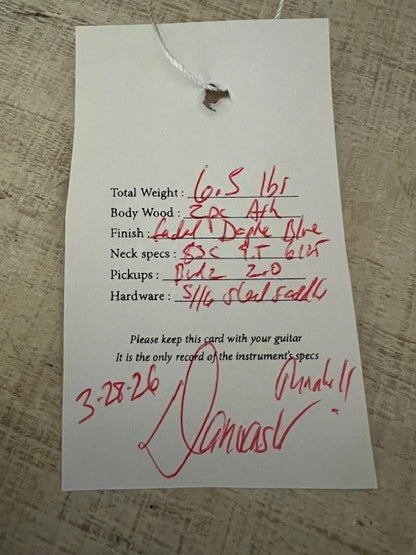 Total Weight : 6.5 lbs
Body Wood : 2pc Ash
Finish : Faded Daphne Blue
Neck specs : 9.5 6125
Pickups : 2.0
Hardware : 5/16 steel saddles
Please keep this card with your guitar
It is the only record of the instrument's specs
3-28-26